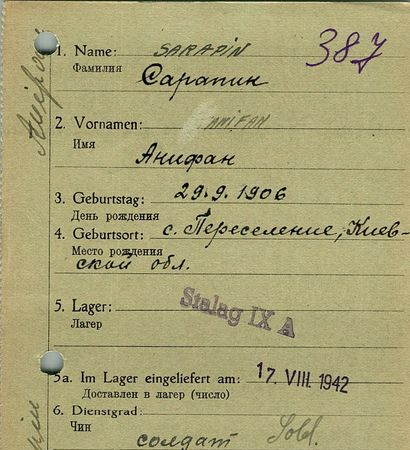 387
1. Name: SARAPIN
Фамилия
Сарапин
2. Vornamen: ANIFAN
Имя
Анифан
3. Geburtstag: 29.9.1906
День рождения
4. Geburtsort: с. Переселение, Киев-
Место рождения
ской обл.
5. Lager:
Лагер
Stalag IX A
5a. Im Lager eingeliefert am: 17. VIII. 1942
Доставлен в лагер (число)
6. Dienstgrad:
Чин
солдат Sold.